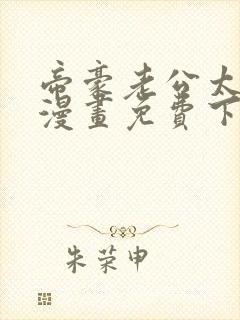 帝豪老公太
漫畫免費下
朱荣申